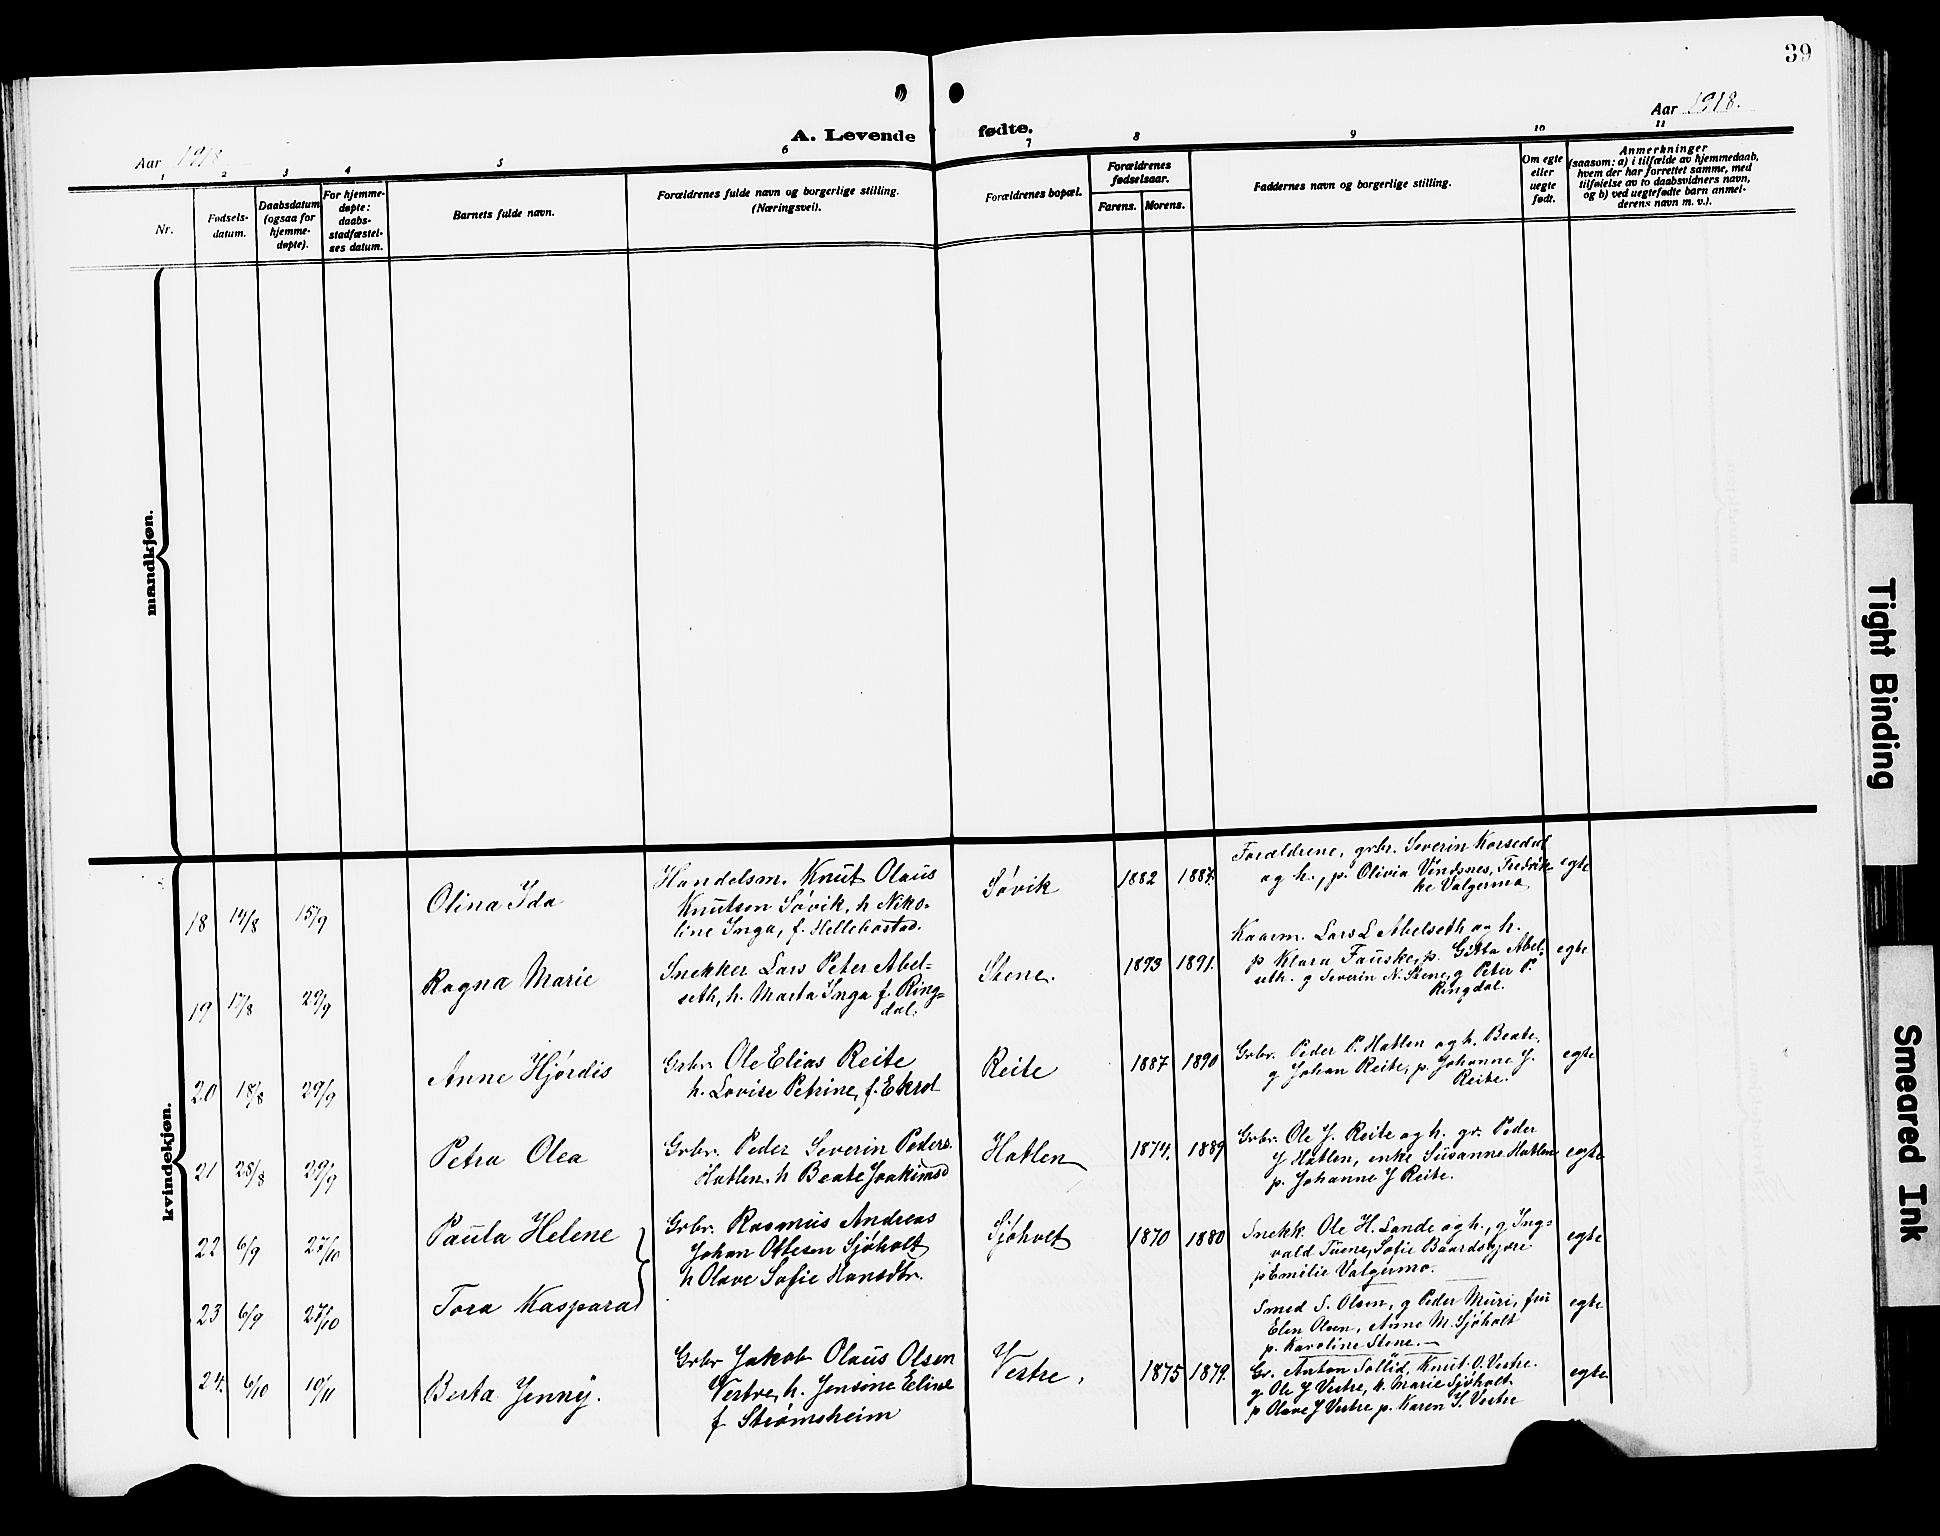 39
Aar 1918.
A. Levende fødte.
Aar 1918
1 2 3 4 5 6 7 8 9 10 11
Nr.
Fødsels-
datum.
Daabsdatum
(ogsaa for
hjemme-
døpte).
For hjemme-
døpte:
daabs-
stadfæstel-
ses datum.
Barnets fulde navn.
Forældrenes fulde navn og borgerlige stilling.
(Næringsvei).
Forældrenes bopæl.
Forældrenes
fødselsaar.
Farens. Morens.
Faddernes navn og borgerlige stilling.
Om egte
eller
uegte
født.
Anmerkninger
(saasom: a) i tilfælde av hjemmedaab,
hvem der har forrettet samme, med
tilføielse av to daabsvidners navn,
og b) ved uegtefødte barn anmel-
derens navn m. v.).
mandkjøn.
kvindekjøn.
18 14/8 15/9
Olina Ida
Handelsm. Knut Olaus
Knutsen Søvik, h Niko-
line Inga, f. Hellebostad.
Søvik
1882 1887.
Forældrene, grbr. Severin Korsedal
og h., p. Olivia Vindsnes, Fredrik-
ke Valgermo
egte
19 17/8 29/9
Ragna Marie
Snekker Lars Peter Abel=
seth, h. Marta Inga f. Ring=
dal.
Stene.
1893 1891.
Kaarm. Lars L Abelseth og h.
p Klara Fauske, p. Gitta Abel-
seth. g Severin N. Stene, g Peter P.
Ringdal.
egte
20 18/8 29/9
Anne Hjørdis
Grbr. Ole Elias Reite
h. Lovise Petrine, f. Ekrol
Reite
1887 1890
Grbr. Peder P. Hatlen og h. Beate,
g Johan Reite, p. Johanne J.
Reite.
egte
21 28/8 29/9
Petra Olea
Grbr. Peder Severin Peders.
Hatlen, h Beate Joakimsd
Hatlen
1874. 1889
Grbr. Ole J. Reite og h. gr. Peder
J Hatlen, enke Susanne Hatlen
p. Johanne J Reite.
egte
22 6/9 27/10
Paula Helene
Grbr. Rasmus Andreas
Johan Ottesen Sjøholt
h Olave Sofie Hansdtr.
Sjøholt
1870 1880
Snekk. Ole H. Lande og h., g Ing=
vald Tuene, Sofie Baardsgjære
p Emilie Valgermo.
egte
23 6/9 27/10
Tora Kaspara
Smed S. Olsen, g Peder Muri, fru
Elen Olsen, Anne M. Sjøholt
p. Karoline Stene. —
egte
24. 6/10 10/11
Berta Jenny.
Grbr Jakob Olaus Olsen
Vestre, h. Jensine Eline
f Strømsheim
Vestre,
1875 1879.
Gr. Anton Sollid, Knut O. Vestre.
g Ole J Vestre, k. Marie Sjøholt
p Olave J Vestre p. Karen S. Vestre
egte
Tight Binding
Smeared Ink